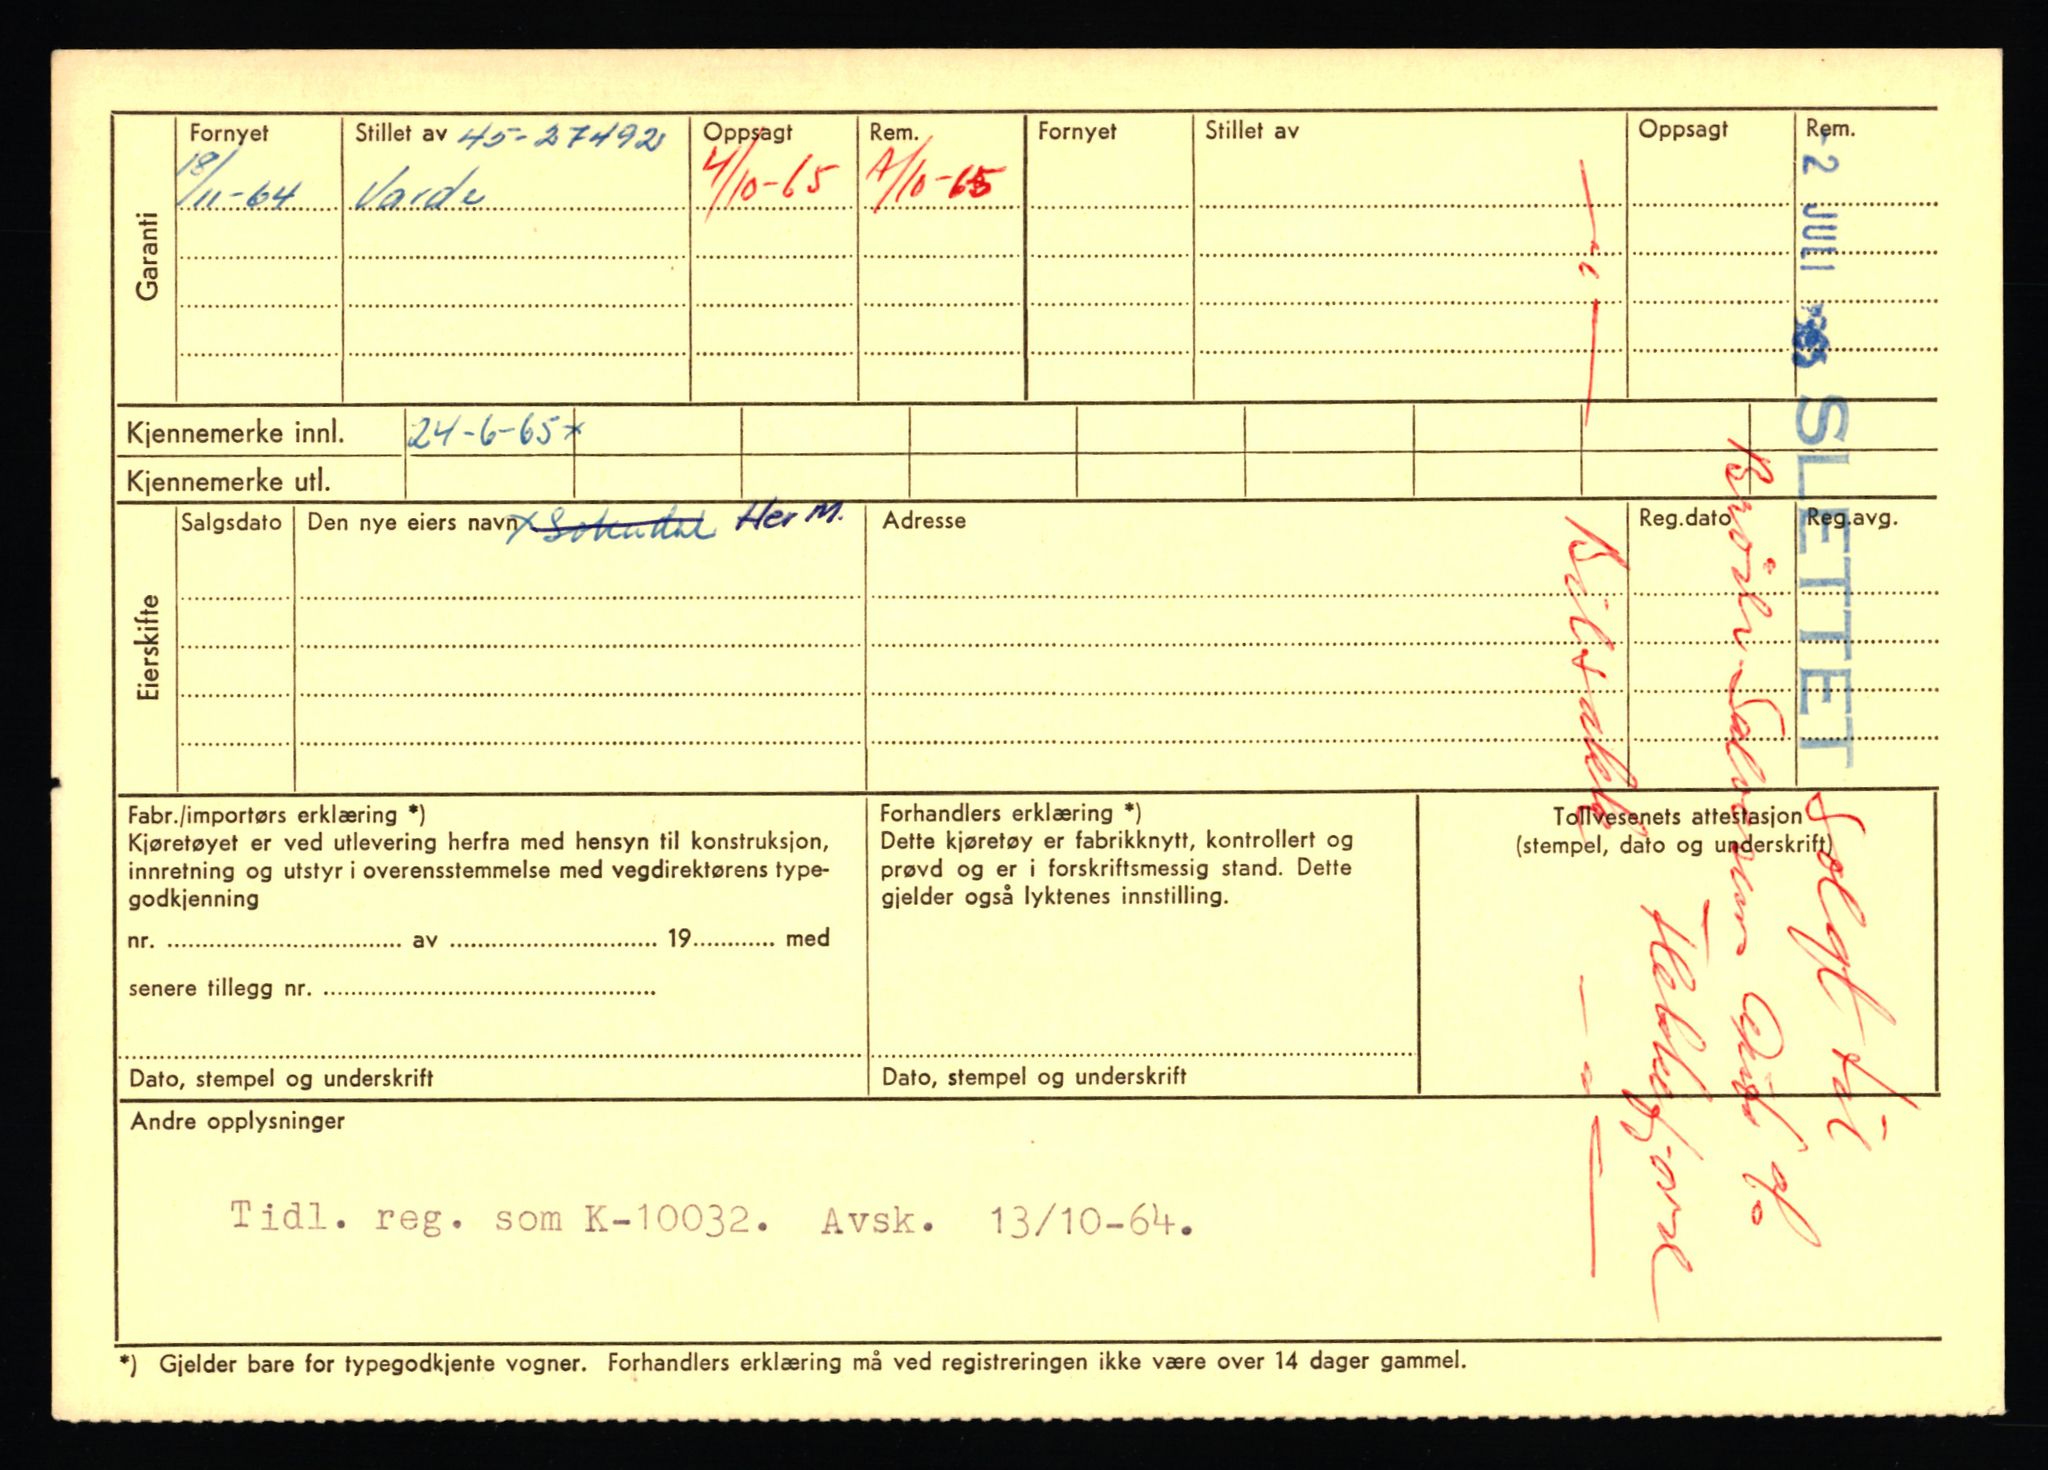 Garanti
Fornyet Stillet av 45-27492 Oppsagt Rem. Fornyet Stillet av Oppsagt Rem.
18/11-64 Varde 4/10-65 4/10-65
-2 JULI 1965
SLETTET
Kjennemerke innl. 24-6-65 x
Kjennemerke utl.
Eierskifte
Salgsdato Den nye eiers navn x Sokndal Her M. Adresse Reg.dato Reg.avg.
Fabr./importørs erklæring *)
Kjøretøyet er ved utlevering herfra med hensyn til konstruksjon,
innretning og utstyr i overensstemmelse med vegdirektørens type-
godkjenning
nr. .......... av .......... 19.......... med
senere tillegg nr. ..........
Dato, stempel og underskrift
Forhandlers erklæring *)
Dette kjøretøy er fabrikknytt, kontrollert og
prøvd og er i forskriftsmessig stand. Dette
gjelder også lyktenes innstilling.
Dato, stempel og underskrift
Tollvesenets attestasjon
(stempel, dato og underskrift)
Solgt til
Hellesfjord
Andre opplysninger
Tidl. reg. som K-10032. Avsk. 13/10-64.
*) Gjelder bare for typegodkjente vogner. Forhandlers erklæring må ved registreringen ikke være over 14 dager gammel.